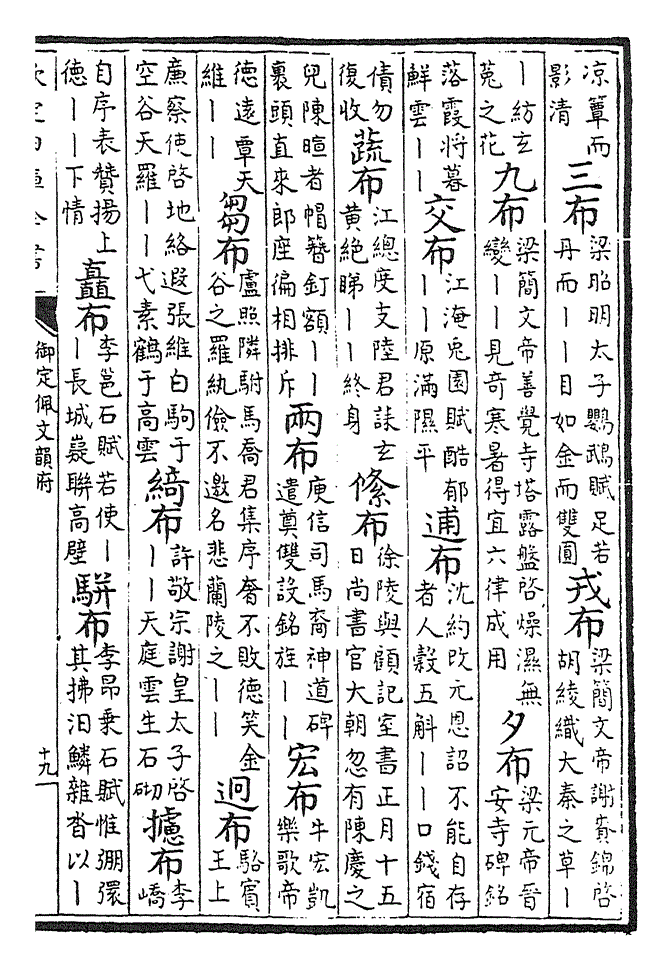 涼簟而影清 三布 梁昭明太子鸚鵡賦足若丹而丨丨目如金而雙圓 戎布 梁簡文帝謝賚錦啓胡綾織大秦之草丨
丨紡玄菟之花 九布 梁簡文帝善覺寺塔露盤啓燥濕無變丨丨見奇寒暑得宜六律成用 夕布 梁元帝晉安寺碑銘
落霞將暮鮮雲丨丨 交布 江淹兎園賦酷郁丨丨原滿隰平 逋布 沈約改元恩詔不能自存者人穀五斛丨丨口錢宿
債勿復收 蔬布 江總度支陸君誄玄黃絶睇丨丨終身 絛布 徐陵與顧記室書正月十五日尚書官大朝忽有陳慶之
兒陳暄者帽簪釘額丨丨裹頭直來郎座徧相排斥 兩布 庾信司馬裔神道碑遣奠雙設銘旌丨丨 宏布 牛宏凱樂歌帝
德遠覃天維丨丨 芻布 盧照隣駙馬喬君集序奢不敗德笑金谷之羅紈儉不邀名悲蘭陵之丨丨 迥布 駱賓王上
廉察使啓地絡遐張維白駒于空谷天羅丨丨弋素鶴于高雲 綺布 許敬宗謝皇太子啓丨丨天庭雲生石砌 攄布 李嶠
自序表贊揚上德丨丨下情 矗布 李邕石賦若使丨丨長城嶷聯高壁 駢布 李昂乗石賦惟弸彋其拂汨鱗雜沓以丨
欽定四庫全書
御定佩文韻府
十九